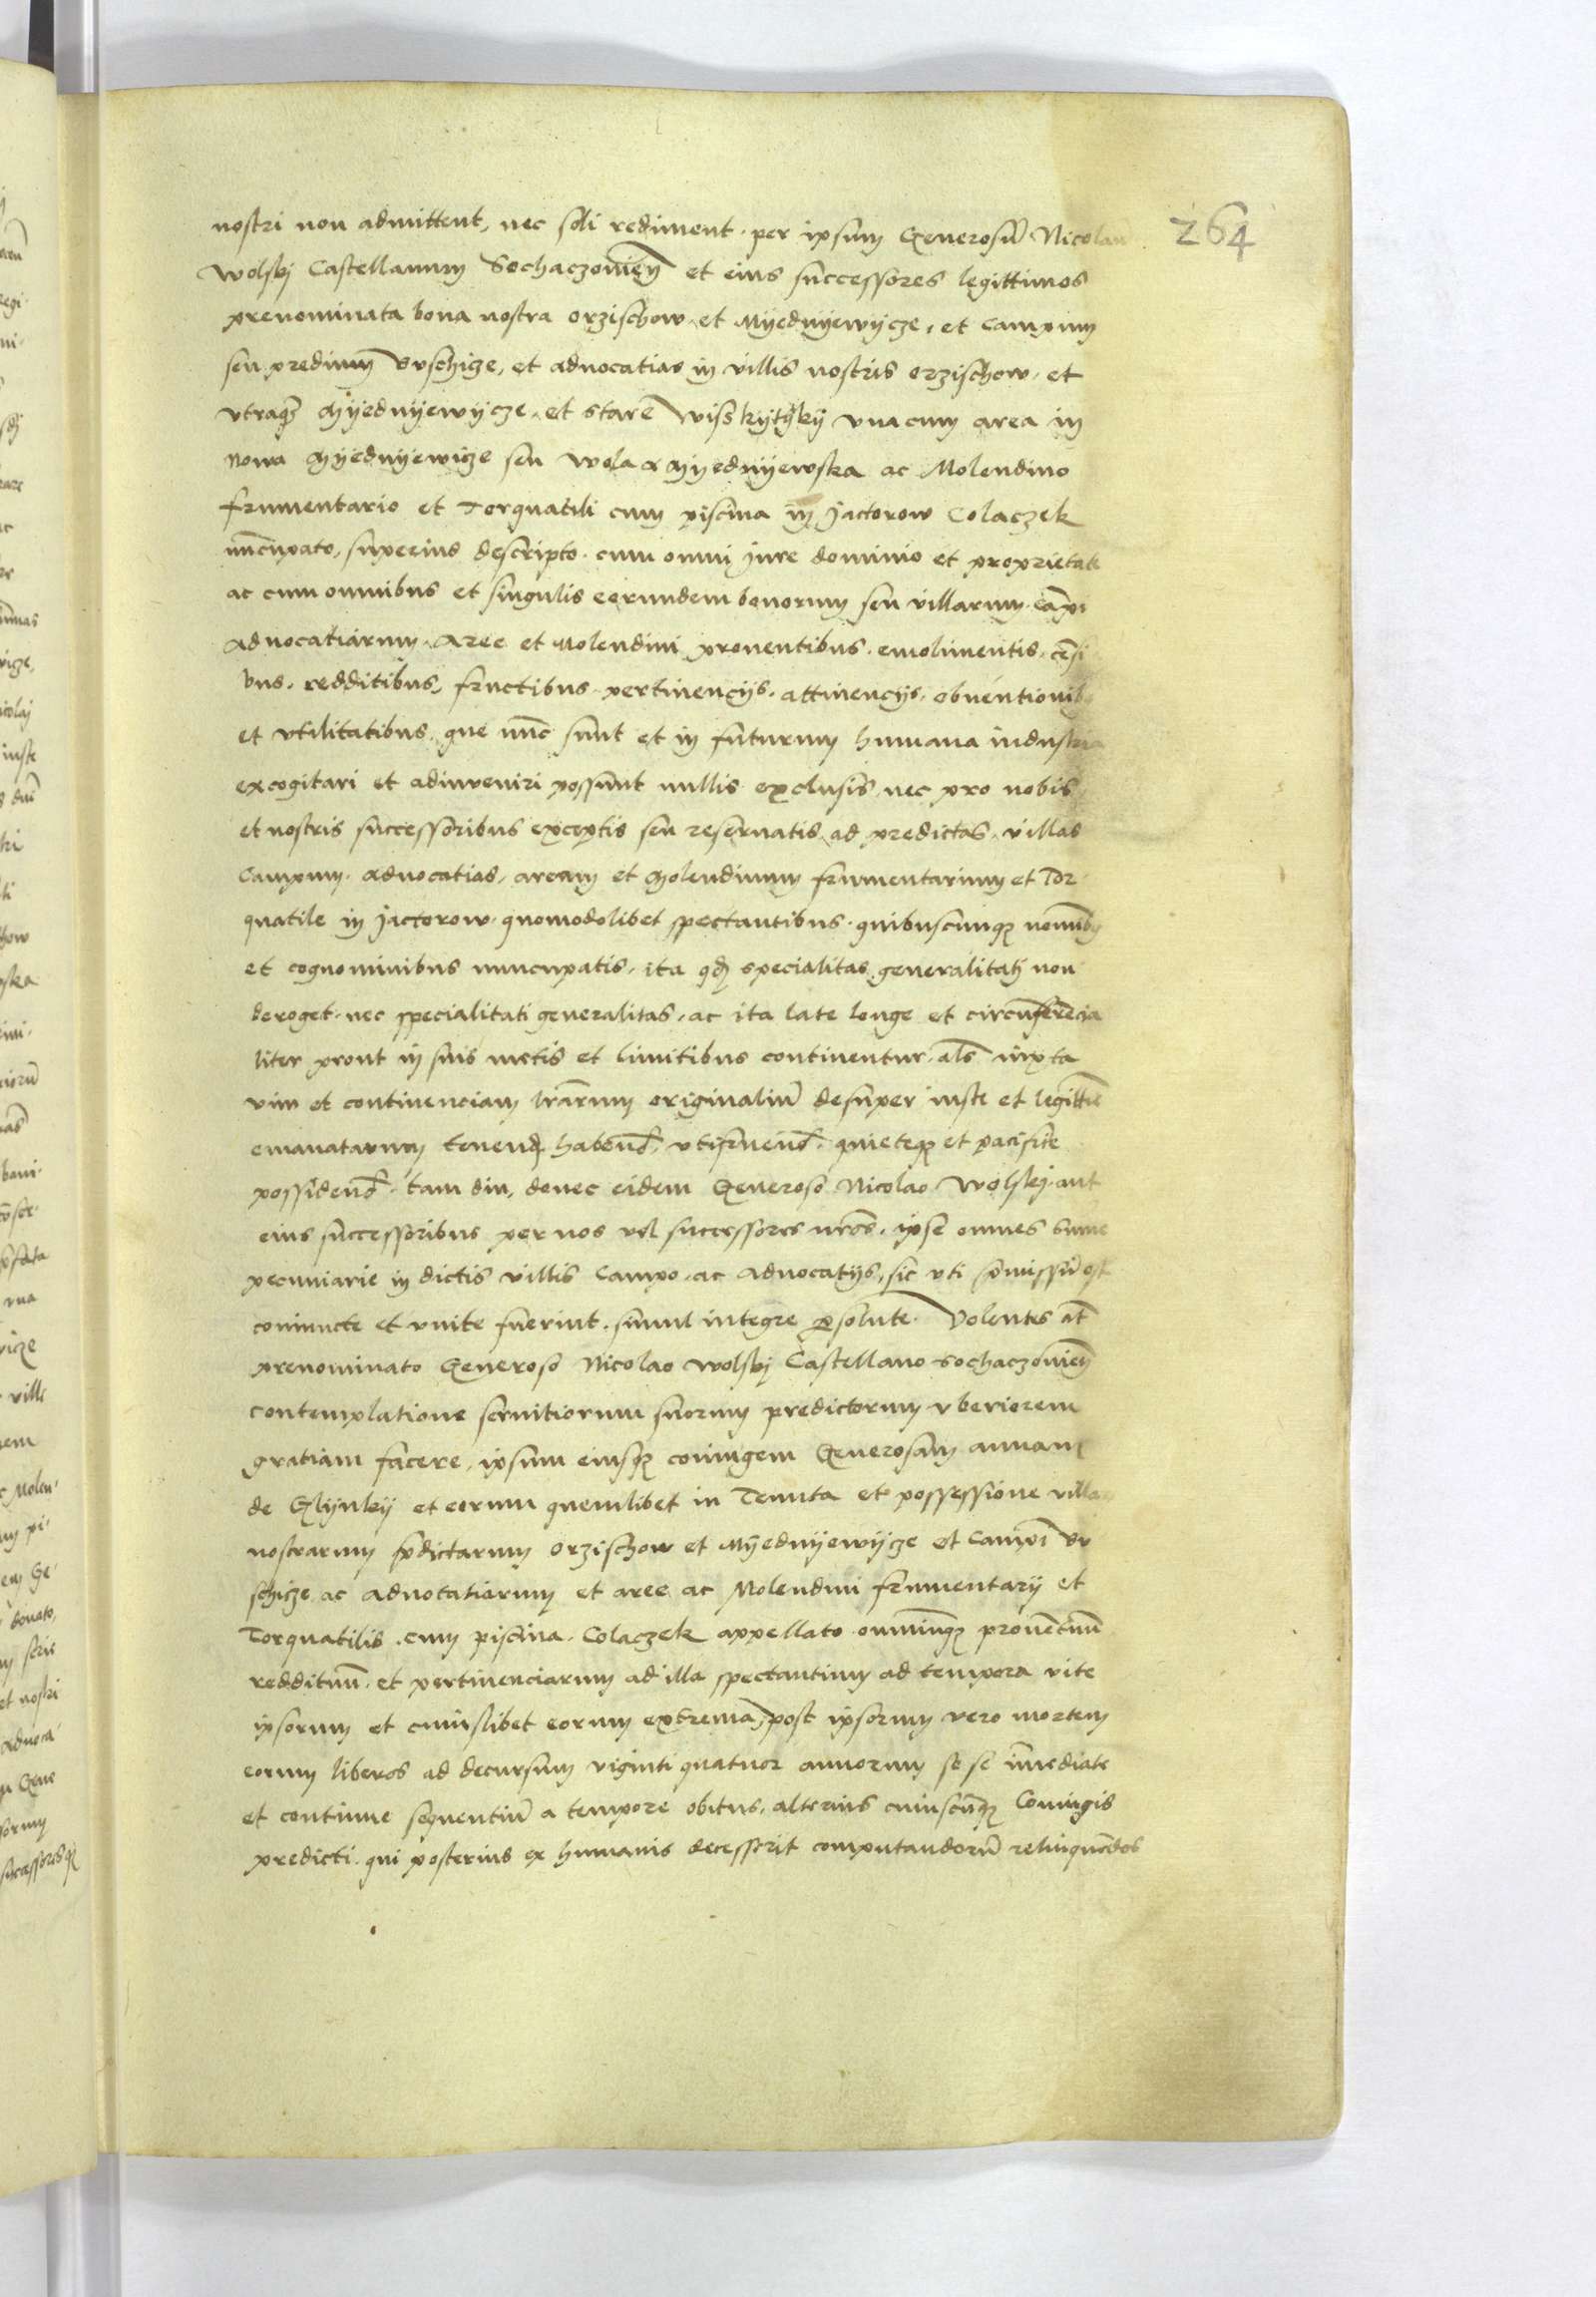 264
nostri non admittent, nec soli rediment. per ipsum Generosū Nicolau
Wolskj Castellanum Sochaczouień et eius successores legittimos
prenominata bona nostra orzischow, et Myednyewycze, et Campum
seu predium Vrschicze, et aduocatias in villis nostris orzischow, et
vtraqz Myednyewycze, et stare Wisskytky vna cum area in
Nowa Myednyewicze seu Wola Myednyewska ac Molendino
frumentario et Torquatili cum piscina in Jactorow Colaczek
nūcupato, superius descripto. cum omni jure dominio et proprietate
ac cum omnibus et singulis eorundem bonorum seu villarum, cāpi
aduocatiarum, Aree et Molendini prouentibus. emolimentis, cēsi
bus. redditibus, fructibus pertinencijs. attinencijs, obuentionibz
et vtilitatibus, que nūc sunt et in futurum humana industria
excogitari et adinueniri possunt nullis exclusis, nec pro nobis
et nostris successoribus exceptis seu reseruatis, ad predictas villas
Campum. aduocatias, aream et Molendinum frumentarium et Tor
quatile in Jactorow. quomodolibet spectantibus. quibuscunqz nominibz
et cognominibus nuncupatis, ita qd specialitas generalitati non
deroget. nec specialitati generalitas, ac ita late longe et circūferēcia
liter prout in suis metis et limitibus continentur, als iuxta
vim et continenciam lrārum originaliū desuper iuste et legittime
emanatarum tenend. habend. vtifruend. quieteqz et pacifice
possidend. tam diu, donec eidem Generoso Nicolao Wolskj. aut
eius successoribus per nos vel successores nrōs. ipse omnes summe
pecuniarie in dictis villis Campo. ac aduocatijs, sic vti p̄missū est
coniuncte et vnite fuerint. simul integre persolute. Volentes at̄
prenominato Generoso Nicolao Wolskj Castellano Sochaczouień
contemplatione seruitiorum suorum predictorum vberiorem
gratiam facere, ipsum eiusqz coniugem Generosam annam
de Glynky et eorum quemlibet in Tenuta et possessione villar
nostrarum p̄dictarum orzischow et Myednyewycze et Campi Vr
schicze ac aduocatiarum et aree ac Molendini frumentarij et
Torquatilis. cum piscina. Colaczek appellato omniumqz prouentuū
reddituū. et pertinenciarum ad illa spectantium ad tempora vite
ipsorum et cuiuslibet eorum extrema, post ipsorum vero mortem
eorum liberos ad decursum viginti quatuor annorum se se īmediate
et continue sequentiū a tempore obitus, alterius cuiuscūqz Coniugis
predicti. qui posterius ex humanis decesserit computandorū relinquēdos